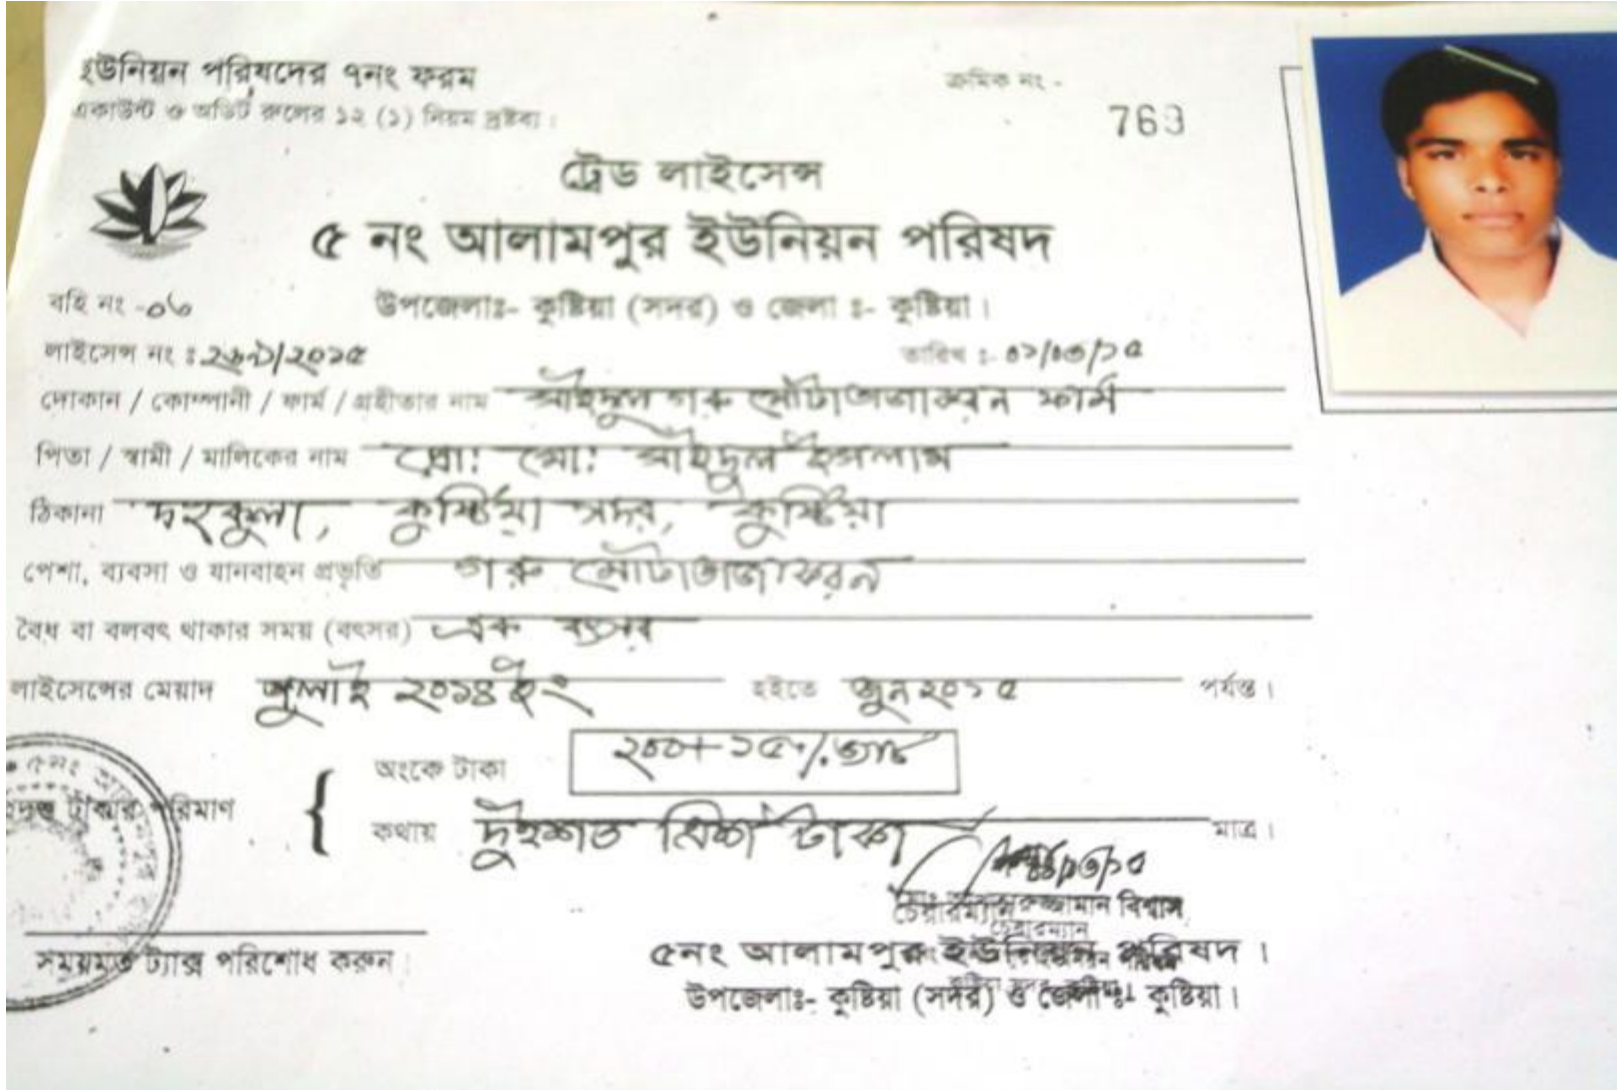 ইউনিয়ন পরিষদের ৭নং ফরম
একাউন্ট ও অডিট রুলের ১২ (১) নিয়ম দ্রষ্টব্য।
ক্রমিক নং -
763
ট্রেড লাইসেন্স
৫ নং আলামপুর ইউনিয়ন পরিষদ
বহি নং -০৬
উপজেলাঃ- কুষ্টিয়া (সদর) ও জেলা ঃ- কুষ্টিয়া।
লাইসেন্স নং ঃ /২০১৫ তারিখ ঃ- ০১/০৩/১৫
দোকান / কোম্পানী / ফার্ম / গ্রহীতার নাম সাইদুল গরু মোটাতাজাকরন ফার্ম
পিতা / স্বামী / মালিকের নাম প্রো: মো: সাইদুল ইসলাম
ঠিকানা দহকুলা, কুষ্টিয়া সদর, কুষ্টিয়া
পেশা, ব্যবসা ও যানবাহন প্রভৃতি গরু মোটাতাজাকরন
বৈধ বা বলবৎ থাকার সময় (বৎসর) এক বৎসর
লাইসেন্সের মেয়াদ জুলাই ২০১৪ ইং হইতে জুন ২০১৫ পর্যন্ত।
প্রদত্ত টাকার পরিমাণ
অংকে টাকা ২০০+১৫%ভ্যাট
কথায় দুইশত ত্রিশ টাকা মাত্র।
চেয়ারম্যান বিশ্বাস
চেয়ারম্যান
সময়মত ট্যাক্স পরিশোধ করুন
৫নং আলামপুর ইউনিয়ন পরিষদ।
উপজেলাঃ- কুষ্টিয়া (সদর) ও জেলাঃ- কুষ্টিয়া।